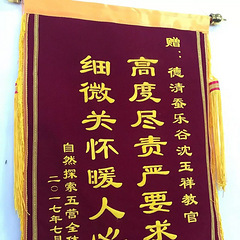 赠：德清蚕乐谷沈玉祥教官
高度尽责严要求
细微关怀暖人心
自然探索五营全体
二〇一七年七月